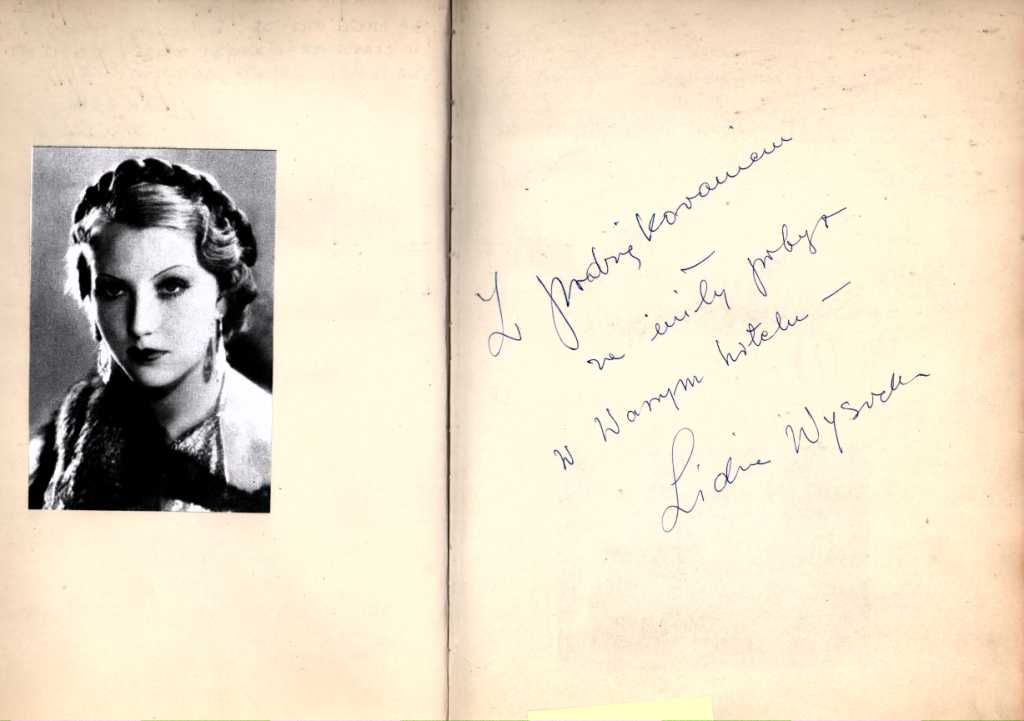 Z podziękowaniem
za miły pobyt
w Waszym hotelu –
Lidia Wysocka